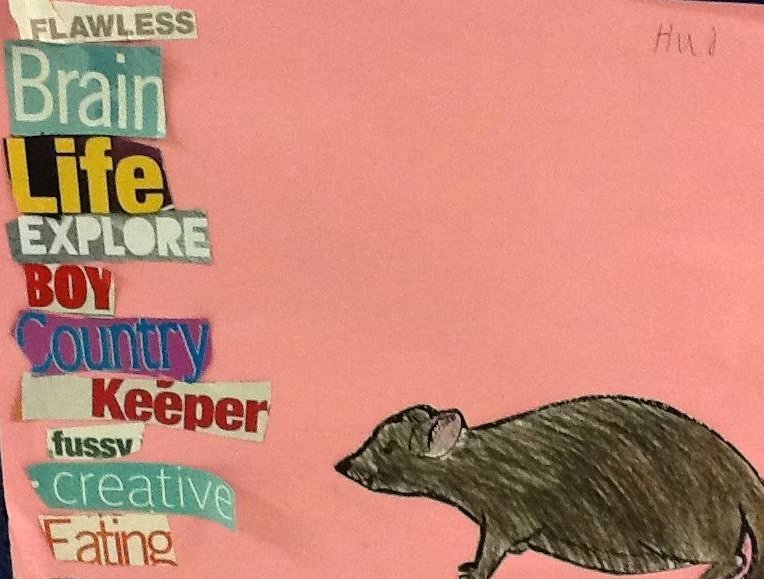 FLAWLESS
Hud
Brain
Life
EXPLORE
BOY
Country
Keeper
fussy
creative
Eating